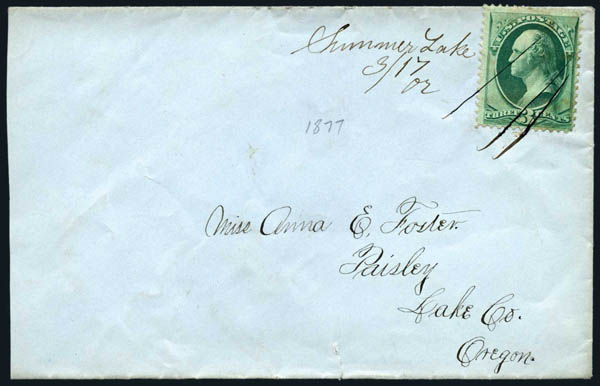 Summer Lake
3/17
Or
U.S. POSTAGE
THREE 3 CENTS
1877
Miss Anna E. Foster.
Paisley
Lake Co.
Oregon.